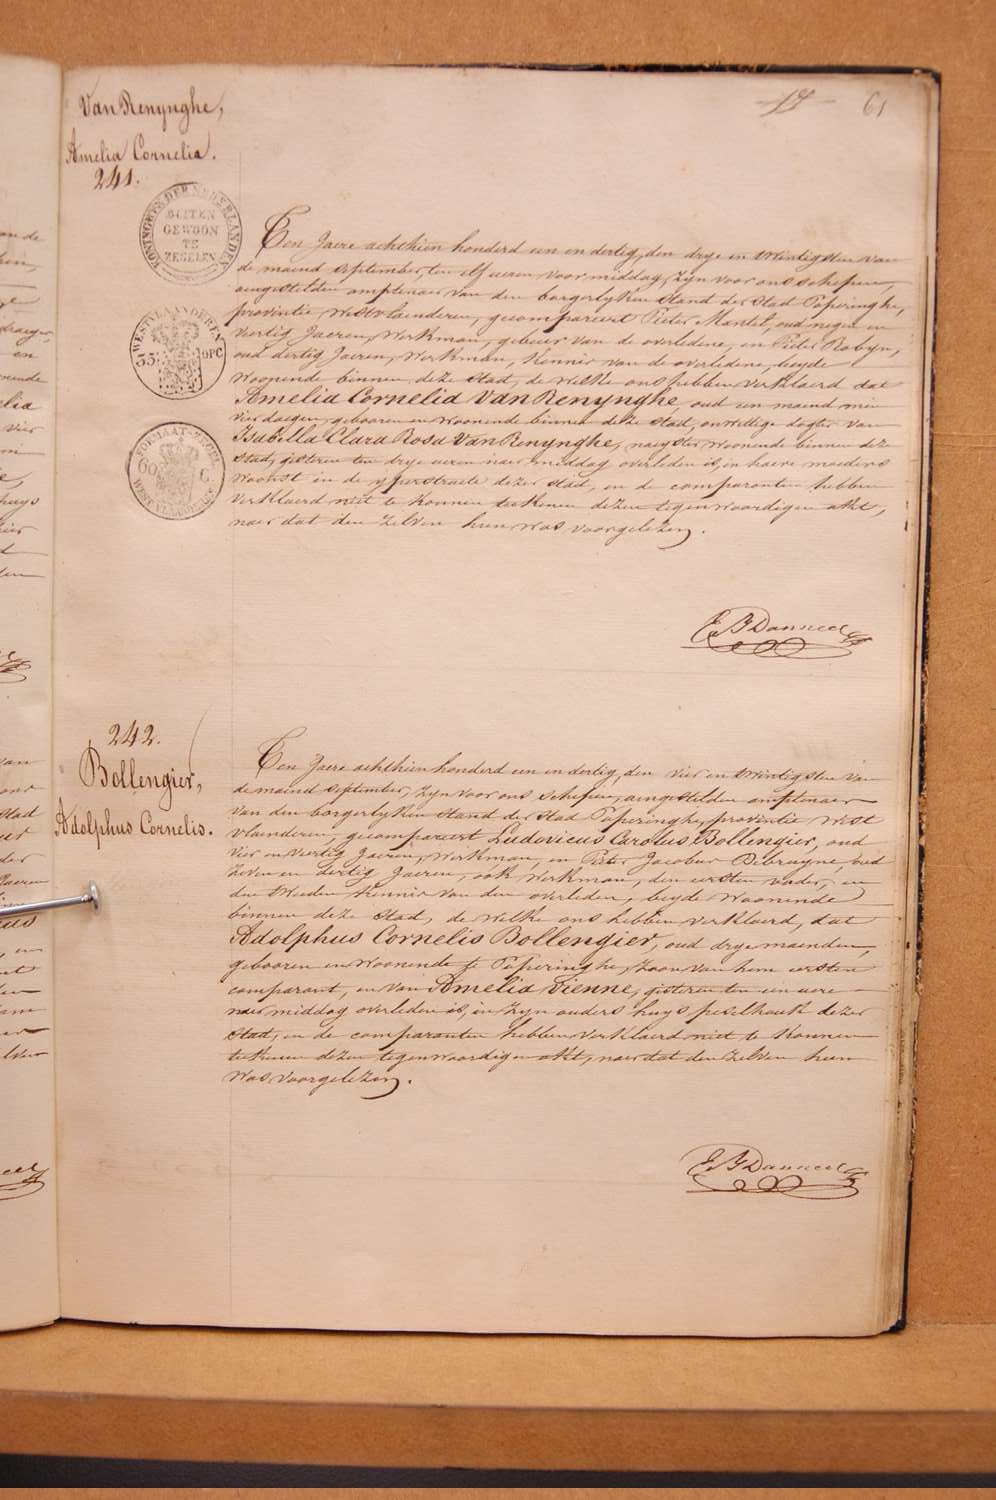 61
Van Renynghe,
Amelia Cornelia.
241.
KONINGRYK DER NEDERLANDEN
BUITEN
GEWOON
TE
ZEGELEN
WESTVLAANDEREN
35 OPC
FORMAAT-ZEGEL
60 C.
WEST VLAANDEREN
Ten Jaere achthien honderd een en dertig, den drye en twintigsten van
de maend september, ten elf ueren voor middag, zyn voor ons schepen,
aengestelden amptenaer van den borgerlyken stand der stad Poperinghe,
provintie westvlaenderen, gecompareert Pieter Mantel, oud negen en
viertig Jaeren, werkman, gebuer van de overledene, en Pieter Robyn,
oud dertig Jaeren, werkman, kennis van de overledene, beyde
woonende binnen deze stad, de welke ons hebben verklaerd dat
Amelia Cornelia Van Renynghe, oud een maend min
vier daegen, gebooren en woonende binnen deze stad, onwettige dogter van
Isabella Clara Rosa Van Renynghe, naeyster, woonende binnen deze
stad, gisteren ten drye ueren naer middag overleden is, in haere moeders
woonst in de yperstraete dezer stad, en de comparanten hebben
verklaerd niet te konnen teekenen dezen tegenwoordigen akt,
naer dat den zelven hun was voorgelezen.
242.
Bollengier,
Adolphus Cornelis.
Ten Jaere achthien honderd een en dertig, den vier en twintigsten van
de maend september, zyn voor ons schepen, aengestelden amptenaer
van den borgerlyken stand der stad Poperinghe, provintie west
vlaenderen, gecompareert Ludovicus Carolus Bollengier, oud
vier en viertig Jaeren, werkman, en Pieter Jacobus Debruyne, oud
zeven en dertig Jaeren, ook werkman, den eersten vader, en
den tweeden kennis van den overleden, beyde woonende
binnen deze stad, de welke ons hebben verklaerd, dat
Adolphus Cornelis Bollengier, oud drye maenden,
gebooren en woonende te Poperinghe, zoon van hem eersten
comparant, en van Amelia Vienne, gisteren ten een uere
naer middag overleden is, in zyn ouders huys peselhoek dezer
stad, en de comparanten hebben verklaerd niet te konnen
teekenen dezen tegenwoordigen akt, naer dat den zelven hun
was voorgelezen.